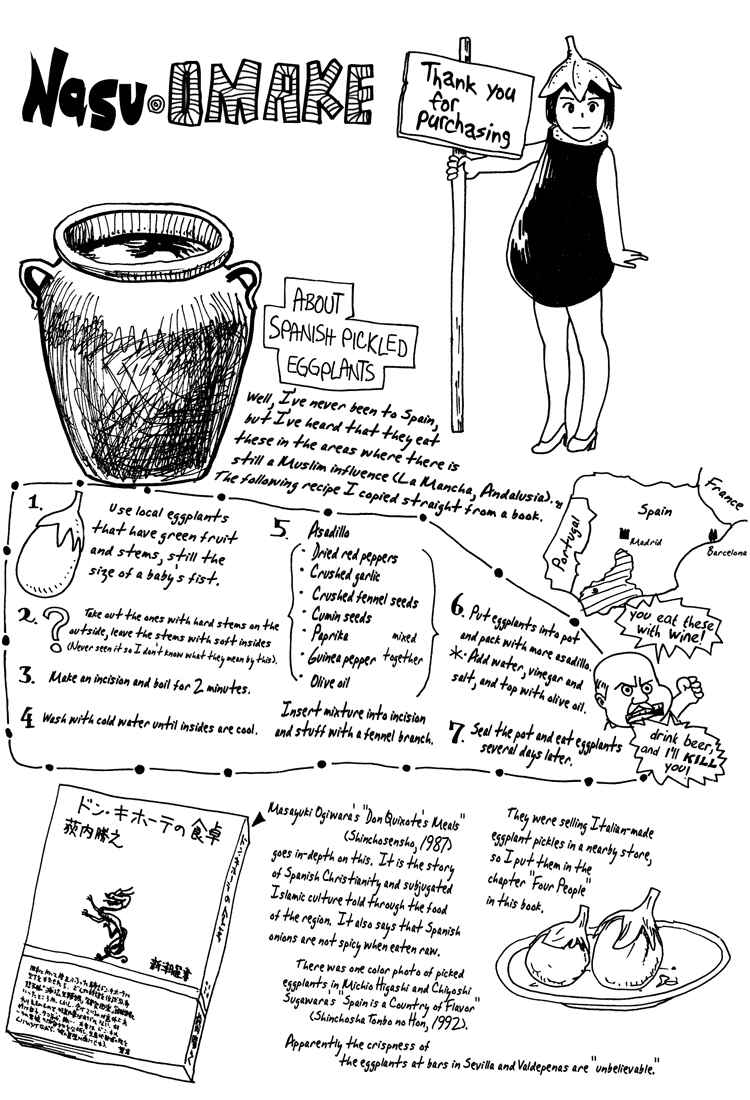 Nasu © OMAKE
Thank you
for
purchasing
ABOUT
SPANISH PICKLED
EGGPLANTS
Well, I've never been to Spain,
but I've heard that they eat
these in the areas where there is
still a Muslim influence (La Mancha, Andalusia).
The following recipe I copied straight from a book.
1.
Use local eggplants
that have green fruit
and stems, still the
size of a baby's fist.
2. ? Take out the ones with hard stems on the
outside, leave the stems with soft insides
(Never seen it so I don't know what they mean by this).
3. Make an incision and boil for 2 minutes.
4. Wash with cold water until insides are cool.
5. Asadillo
· Dried red peppers
· Crushed garlic
· Crushed fennel seeds
· Cumin seeds
· Paprika
· Guinea pepper
· Olive oil
mixed
together
Insert mixture into incision
and stuff with a fennel branch.
6. Put eggplants into pot
and pack with more asadillo.
* Add water, vinegar and
salt, and top with olive oil.
7. Seal the pot and eat eggplants
several days later.
France
Spain
Portugal
Madrid
Barcelona
you eat these
with wine!
drink beer,
and I'll KILL
you!
ドン・キホーテの食卓
荻内勝之
新潮選書
Masayuki Ogiwara's "Don Quixote's Meals"
(Shinchosensho, 1987)
goes in-depth on this. It is the story
of Spanish Christianity and subjugated
Islamic culture told through the food
of the region. It also says that Spanish
onions are not spicy when eaten raw.
There was one color photo of picked
eggplants in Michio Higashi and Chiyoshi
Sugawara's "Spain is a Country of Flavor"
(Shinchosha Tonbo no Hon, 1992).
Apparently the crispness of
the eggplants at bars in Sevilla and Valdepenas are "unbelievable."
They were selling Italian-made
eggplant pickles in a nearby store,
so I put them in the
chapter "Four People"
in this book.